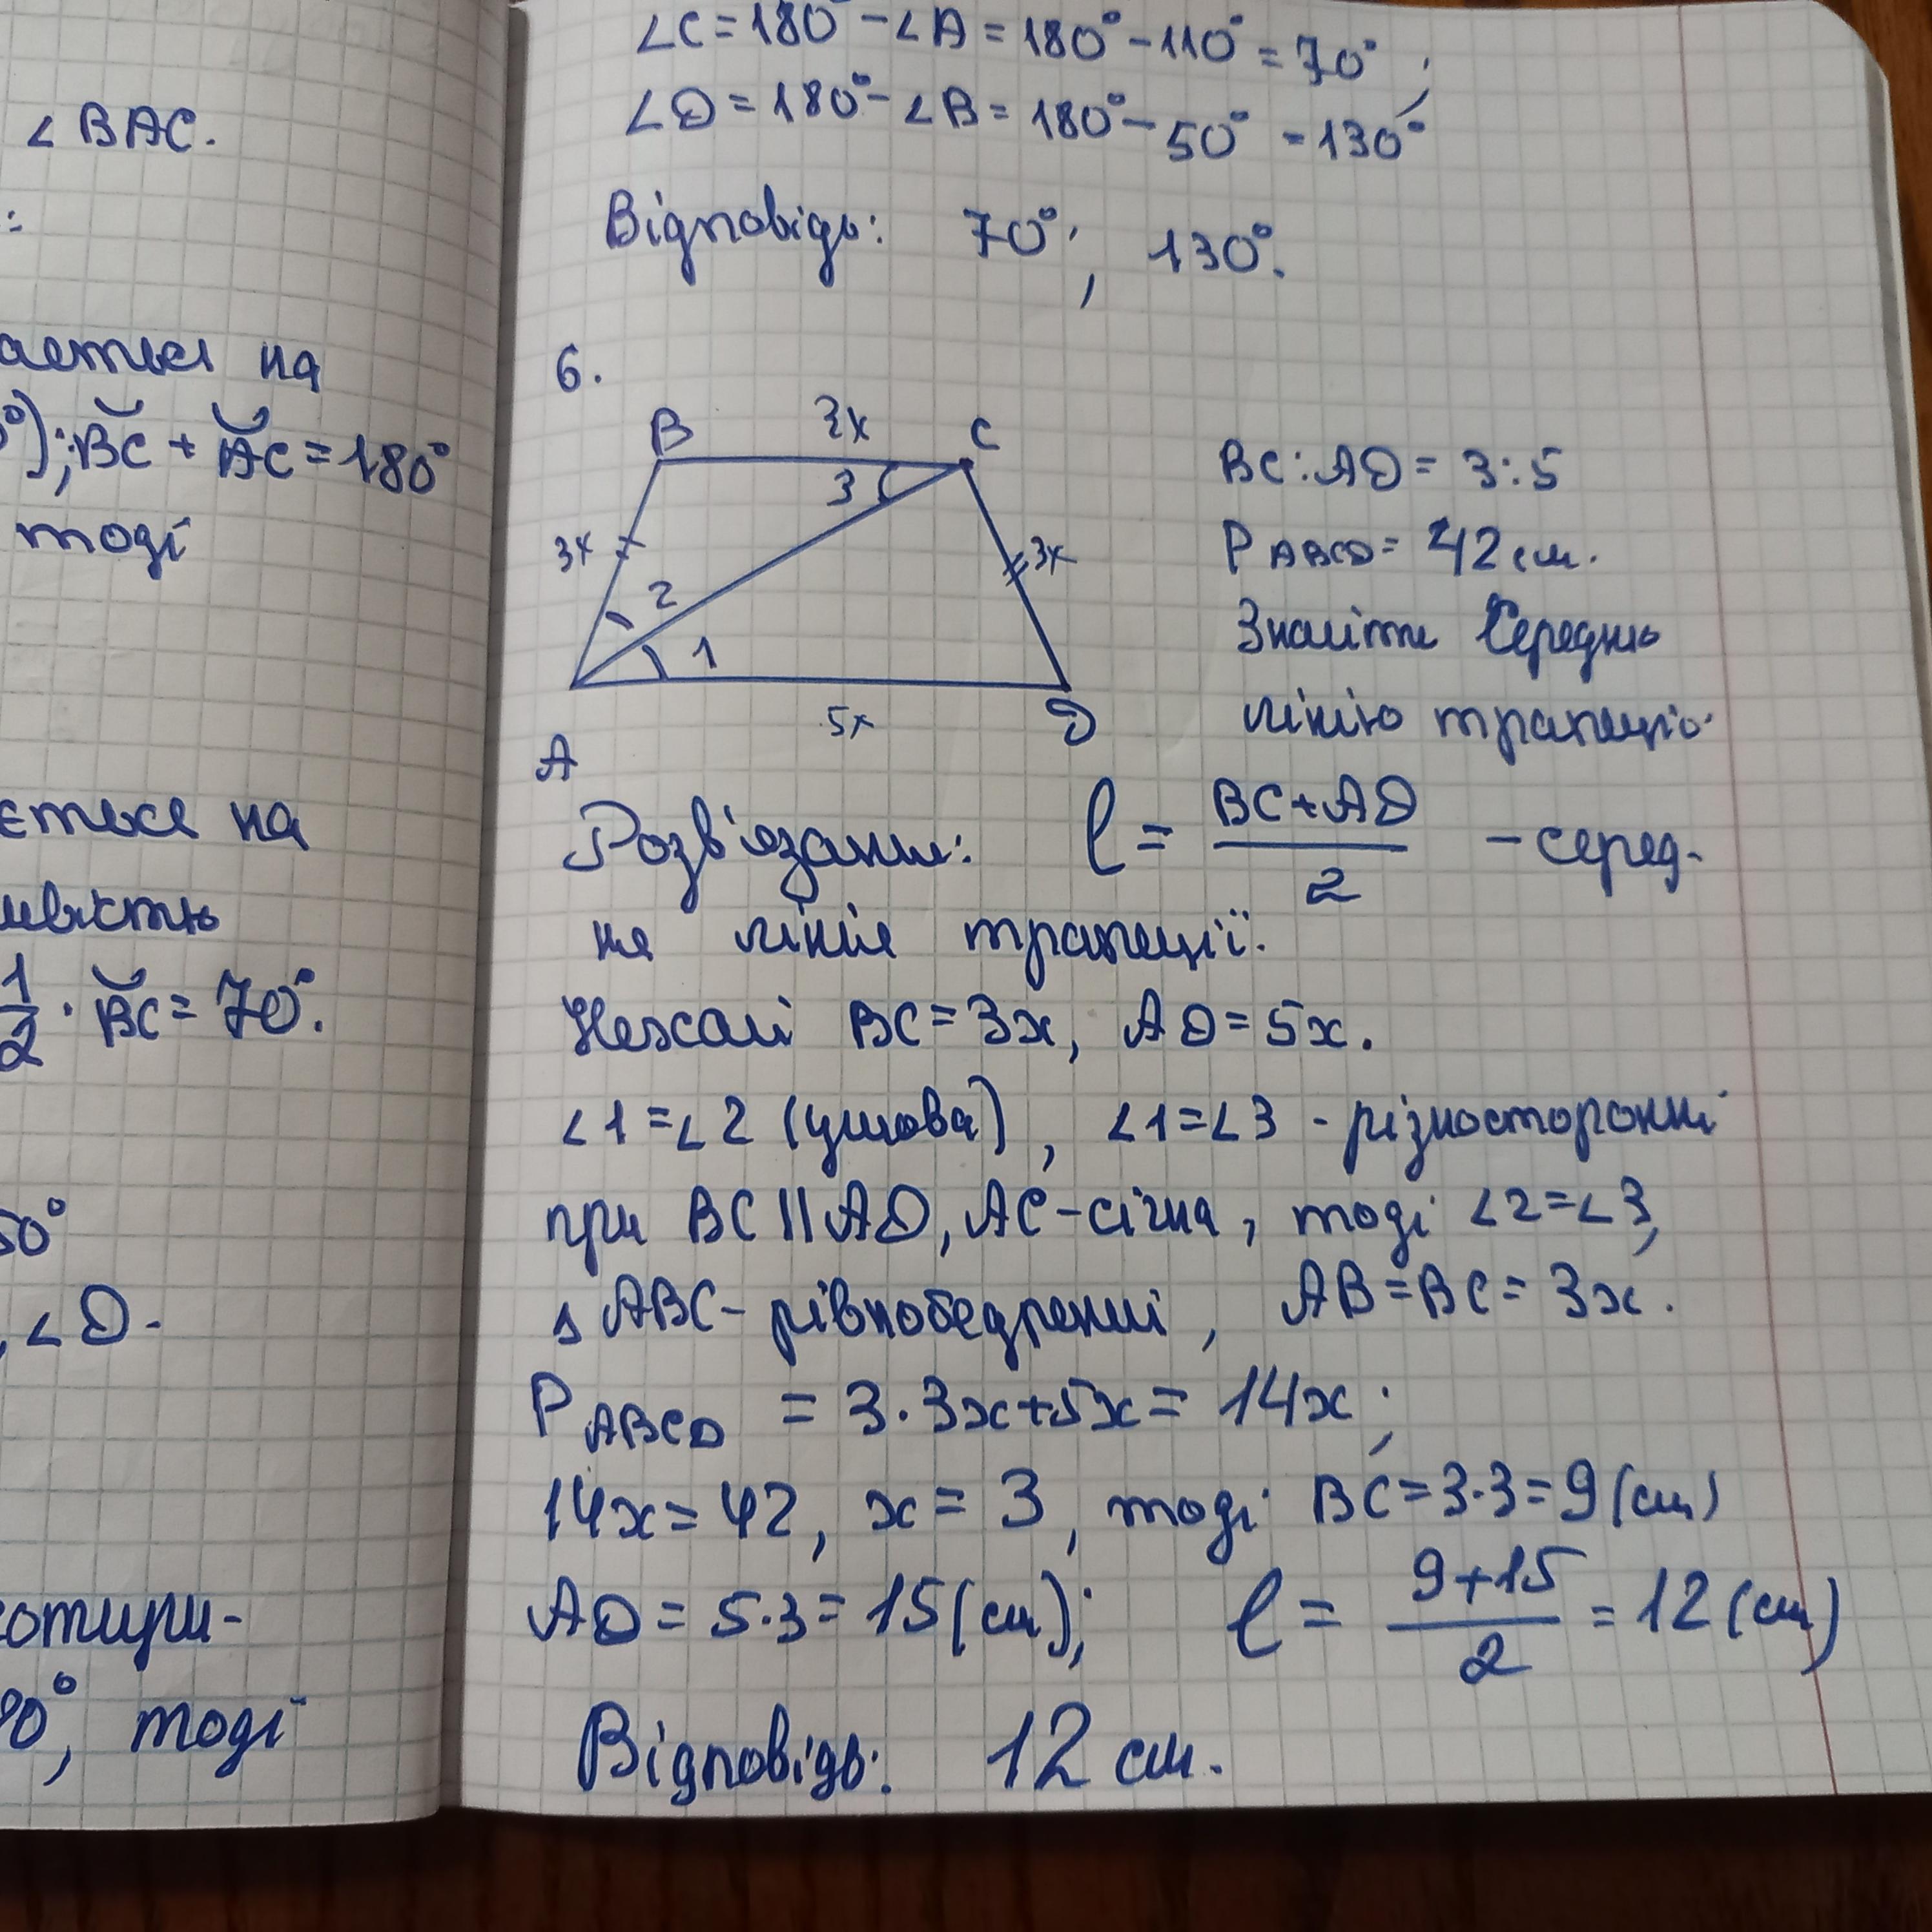 ∠BAC.
:
ається на
°); B͝C + A͝C = 180°
тоді
ється на
ивістю
1/2 · B͝C = 70°.
50°
, ∠D.
отири-
80°, тоді
∠C = 180° - ∠A = 180° - 110° = 70°;
∠D = 180° - ∠B = 180° - 50° = 130°
Відповідь: 70°; 130°.
6.
B 3x C
3
3x 3x
2
1
5x D
A
BC : AD = 3 : 5
P ABCD = 42 см.
Знайти середню
лінію трапеції.
Розв'язання: l = (BC + AD)/2 - серед-
ня лінія трапеції.
Нехай BC = 3x, AD = 5x.
∠1 = ∠2 (умова), ∠1 = ∠3 - різносторонні
при BC || AD, AC - січна, тоді ∠2 = ∠3,
△ ABC - рівнобедрений, AB = BC = 3x.
P ABCD = 3 · 3x + 5x = 14x;
14x = 42, x = 3, тоді BC = 3 · 3 = 9 (см)
AD = 5 · 3 = 15 (см); l = (9 + 15)/2 = 12 (см)
Відповідь: 12 см.